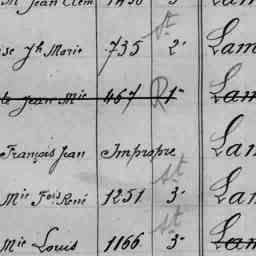 Jean Clém 1436 3 Lam
St
se Jh Marie 735 2e Lam
le Jean Mie 467 R 1e Lam
François Jean Impropre Lam
St
Mie Fois René 1251 3e Lam
St
Mie Louis 1166 3e Lam